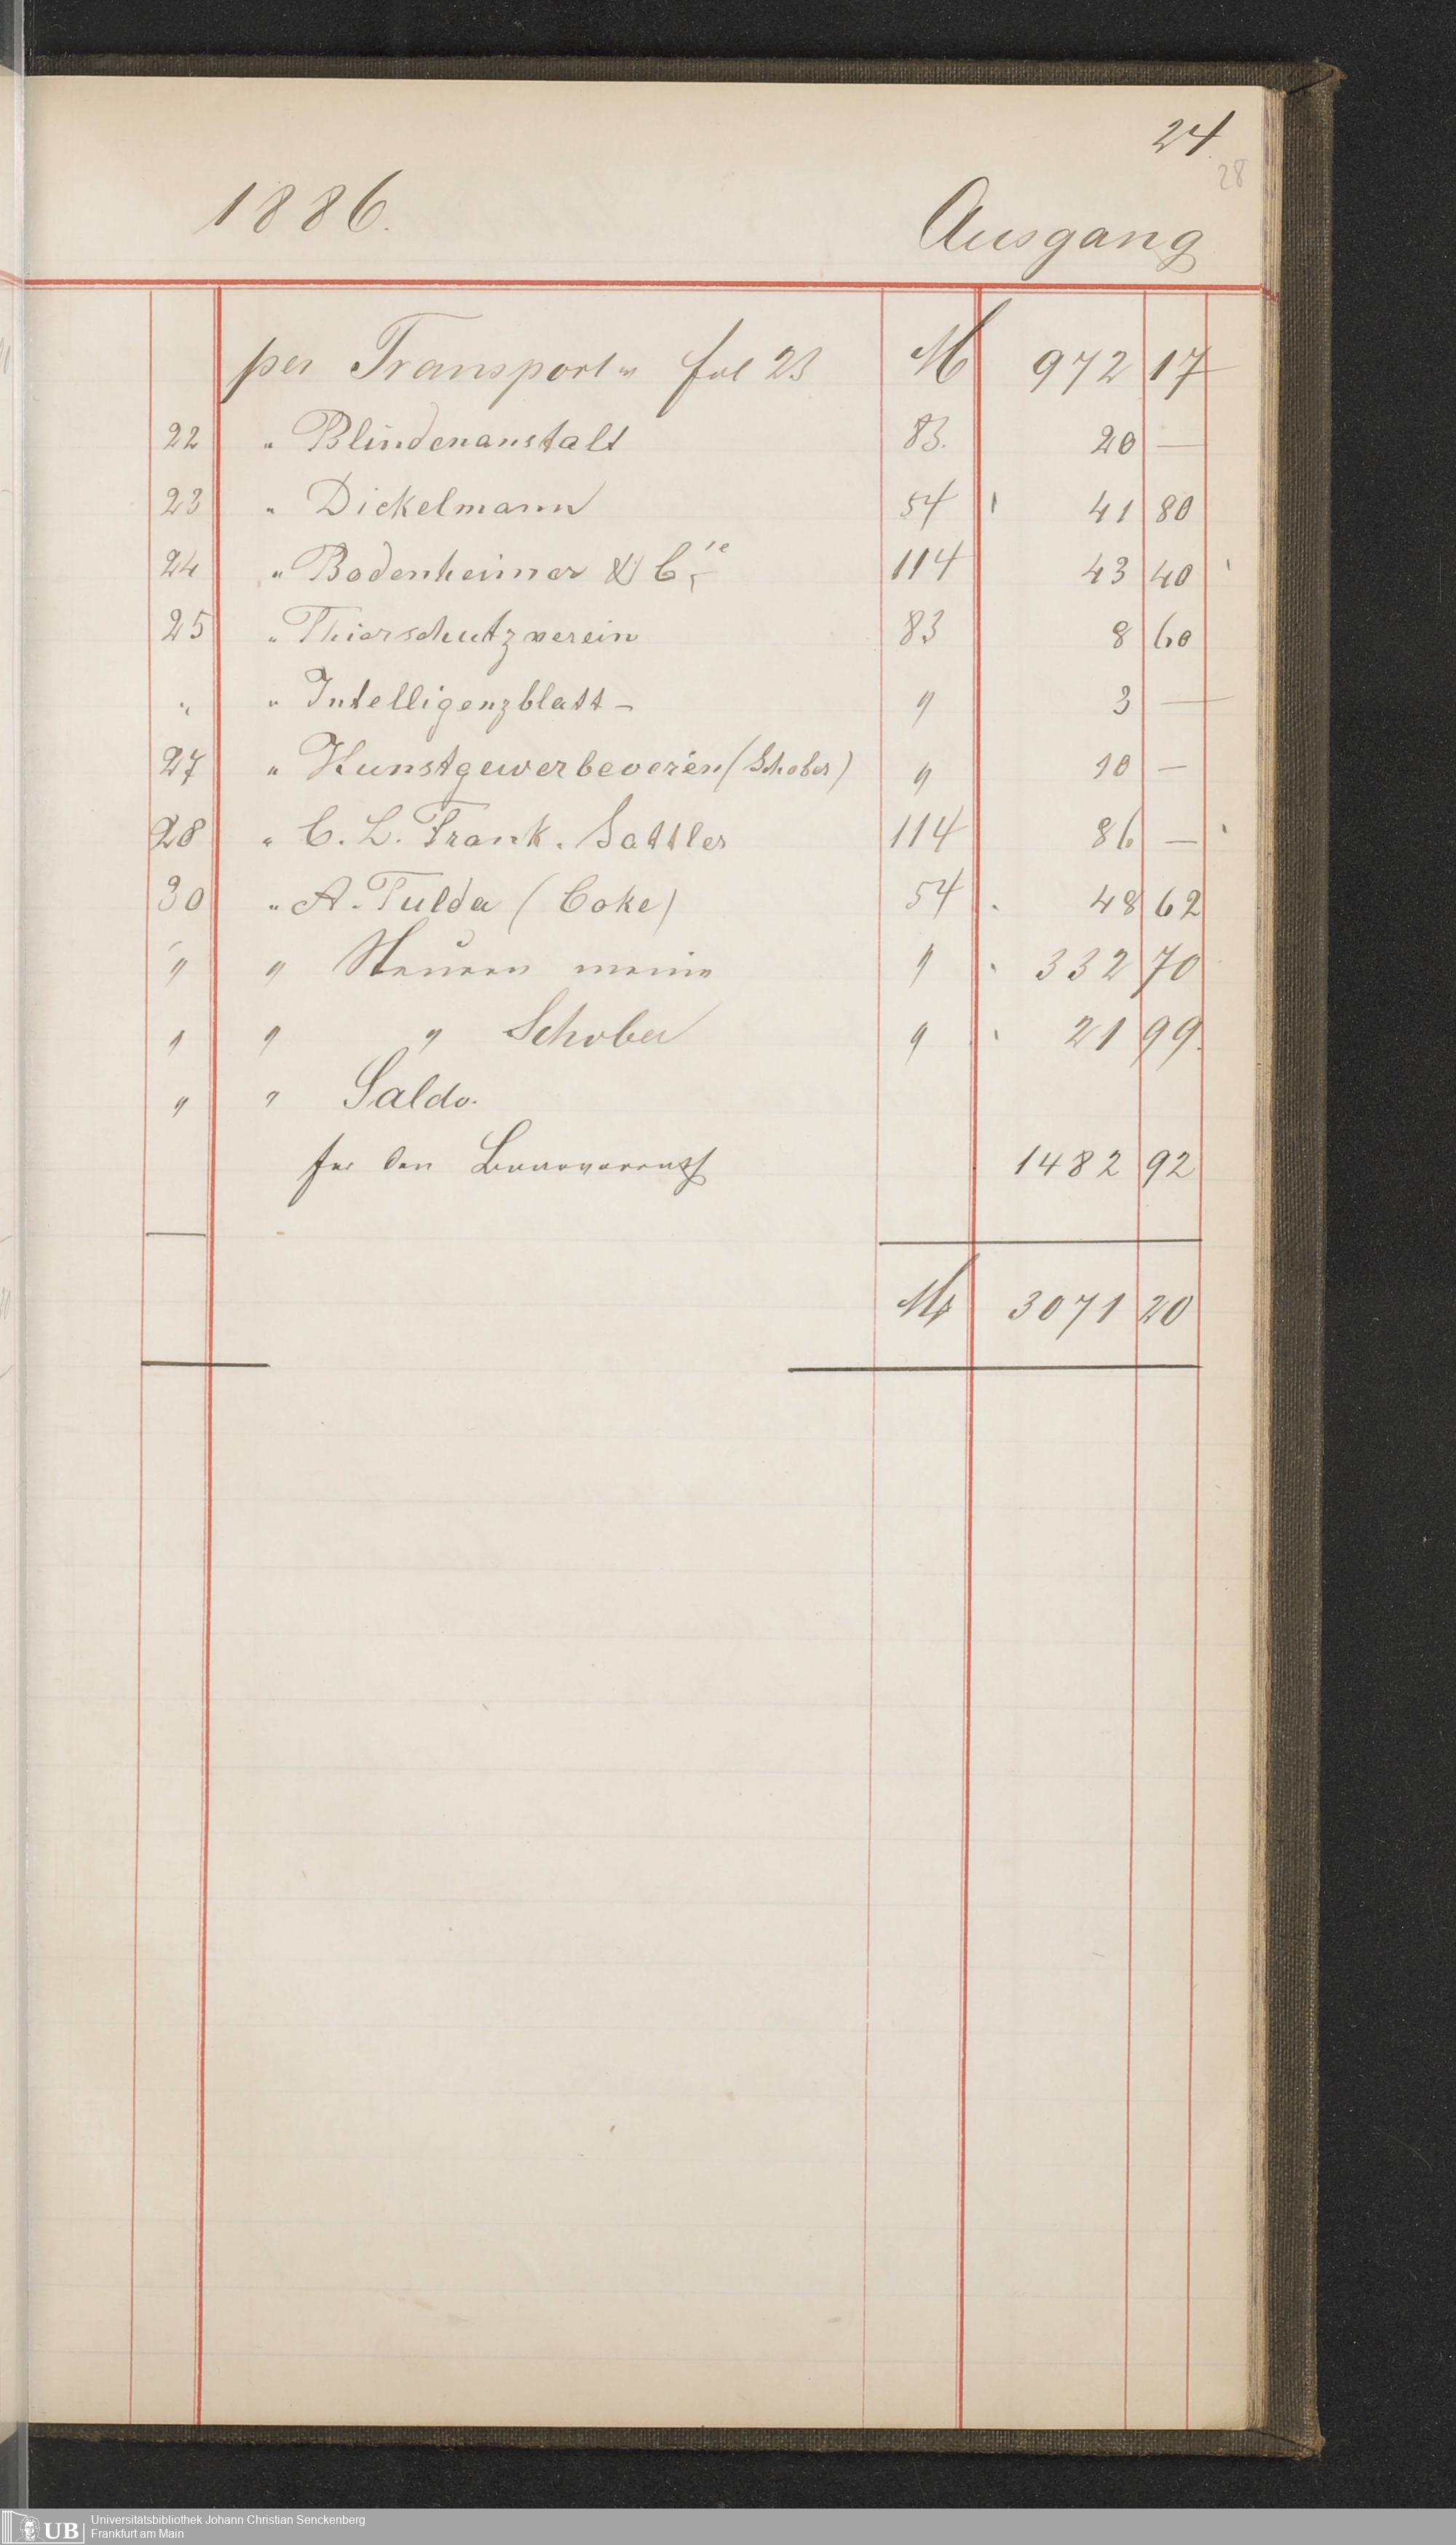 24.
28
1886. Ausgang
per Transport fol 23 M 972 17
22 " Blindenanstalt 83. 20 —
23 " Dickelmann 54 41 80
24 " Bodenheimer & Cie 114 43 40
25 " Thierschutzverein 83 8 60
" " Intelligenzblatt - " 3 —
27 " Kunstgewerbeverein (Schober) " 10 —
28 " C. L. Frank. Sattler 114 86 —
30 " A. Fulda (Coke) 54 48 62
" " Steuern meine " 332 70
" " " Schober " 21 99.
" " Saldo.
für den Baarvorrath 1482 92
M 3071 20
UB
Universitätsbibliothek Johann Christian Senckenberg
Frankfurt am Main